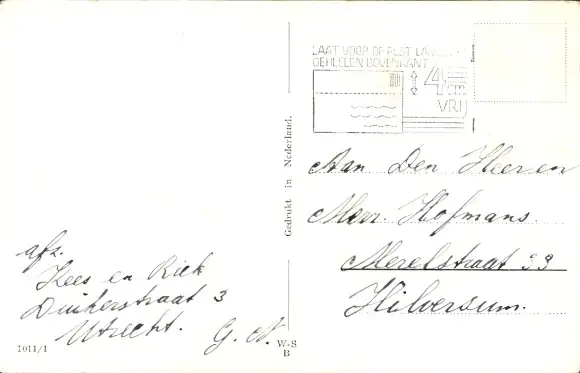 LAAT VOOR DE POST LANGS DE
GEHELEN BOVENKANT
4 cm
VRIJ
Gedrukt in Nederland.
Aan Den Heer en
Mevr. Hofmans.
Merelstraat 33
Hilversum.
afz.
Kees en Riek
Duikerstraat 3
Utrecht. G. N.
1011/1
W-S
B